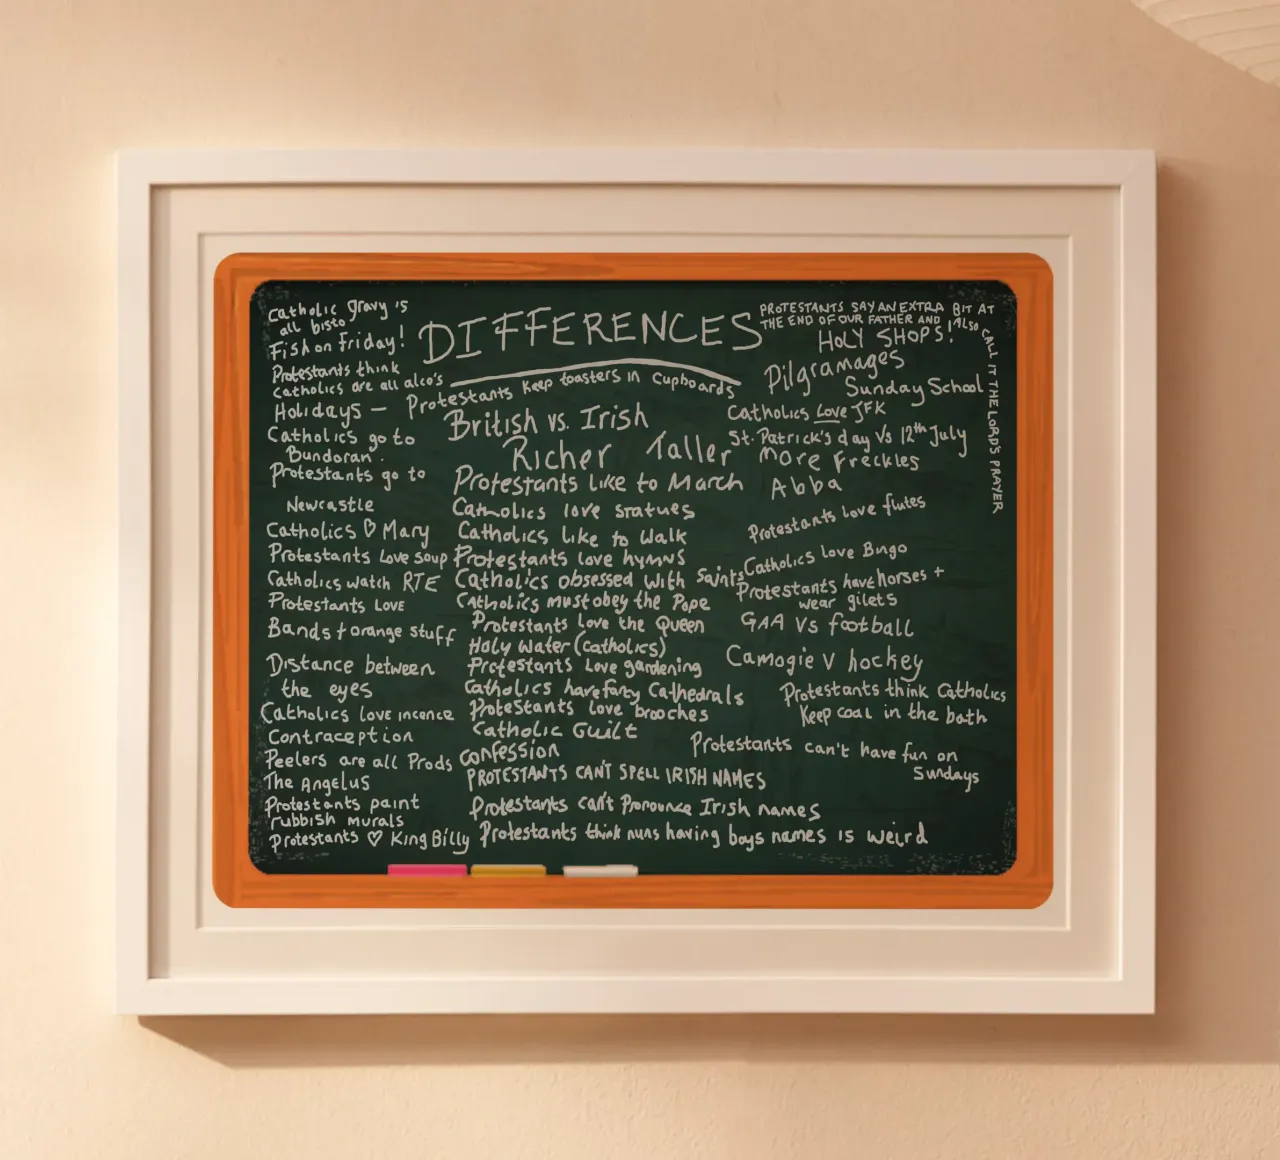 DIFFERENCES
Catholic gravy is
all bisto
Fish on Friday!
Protestants think
Catholics are all alco's
Holidays –
Catholics go to
Bundoran.
Protestants go to
Newcastle
Catholics ♡ Mary
Protestants Love soup
Catholics watch RTE
Protestants LOVE
Bands + orange stuff
Distance between
the eyes
Catholics love incence
Contraception
Peelers are all Prods
The Angelus
Protestants paint
rubbish murals
Protestants ♡ King Billy
Protestants Keep toasters in Cupboards
British vs. Irish
Richer Taller
Protestants like to March
Catholics love statues
Catholics like to Walk
Protestants love hymns
Catholics obsessed with Saints
Catholics must obey the Pope
Protestants love the Queen
Holy Water (catholics)
Protestants Love gardening
Catholics have fancy Cathedrals
Protestants love brooches
Catholic Guilt
confession
PROTESTANTS CAN'T SPELL IRISH NAMES
Protestants can't Pronounce Irish names
Protestants think nuns having boys names is weird
PROTESTANTS SAY AN EXTRA BIT AT
THE END OF OUR FATHER AND ALSO
CALL IT THE LORDS PRAYER
HOLY SHOPS!
Pilgramages
Sunday School
Catholics Love JFK
St. Patrick's day Vs 12th July
more Freckles
Abba
Protestants love flutes
Catholics love Bingo
Protestants have horses +
wear gilets
GAA Vs football
Camogie V hockey
Protestants think Catholics
Keep coal in the bath
Protestants can't have fun on
Sundays